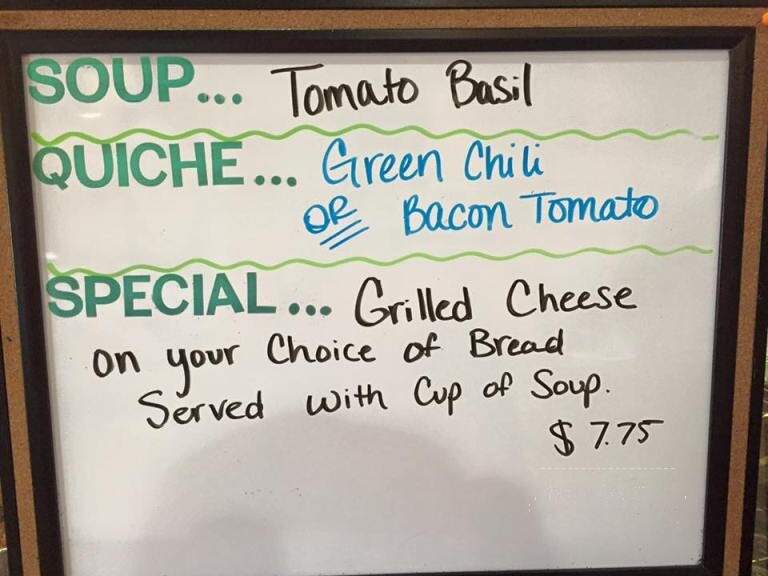 SOUP... Tomato Basil
QUICHE... Green Chili
OR Bacon Tomato
SPECIAL... Grilled Cheese
on your Choice of Bread
Served with Cup of Soup.
$7.75